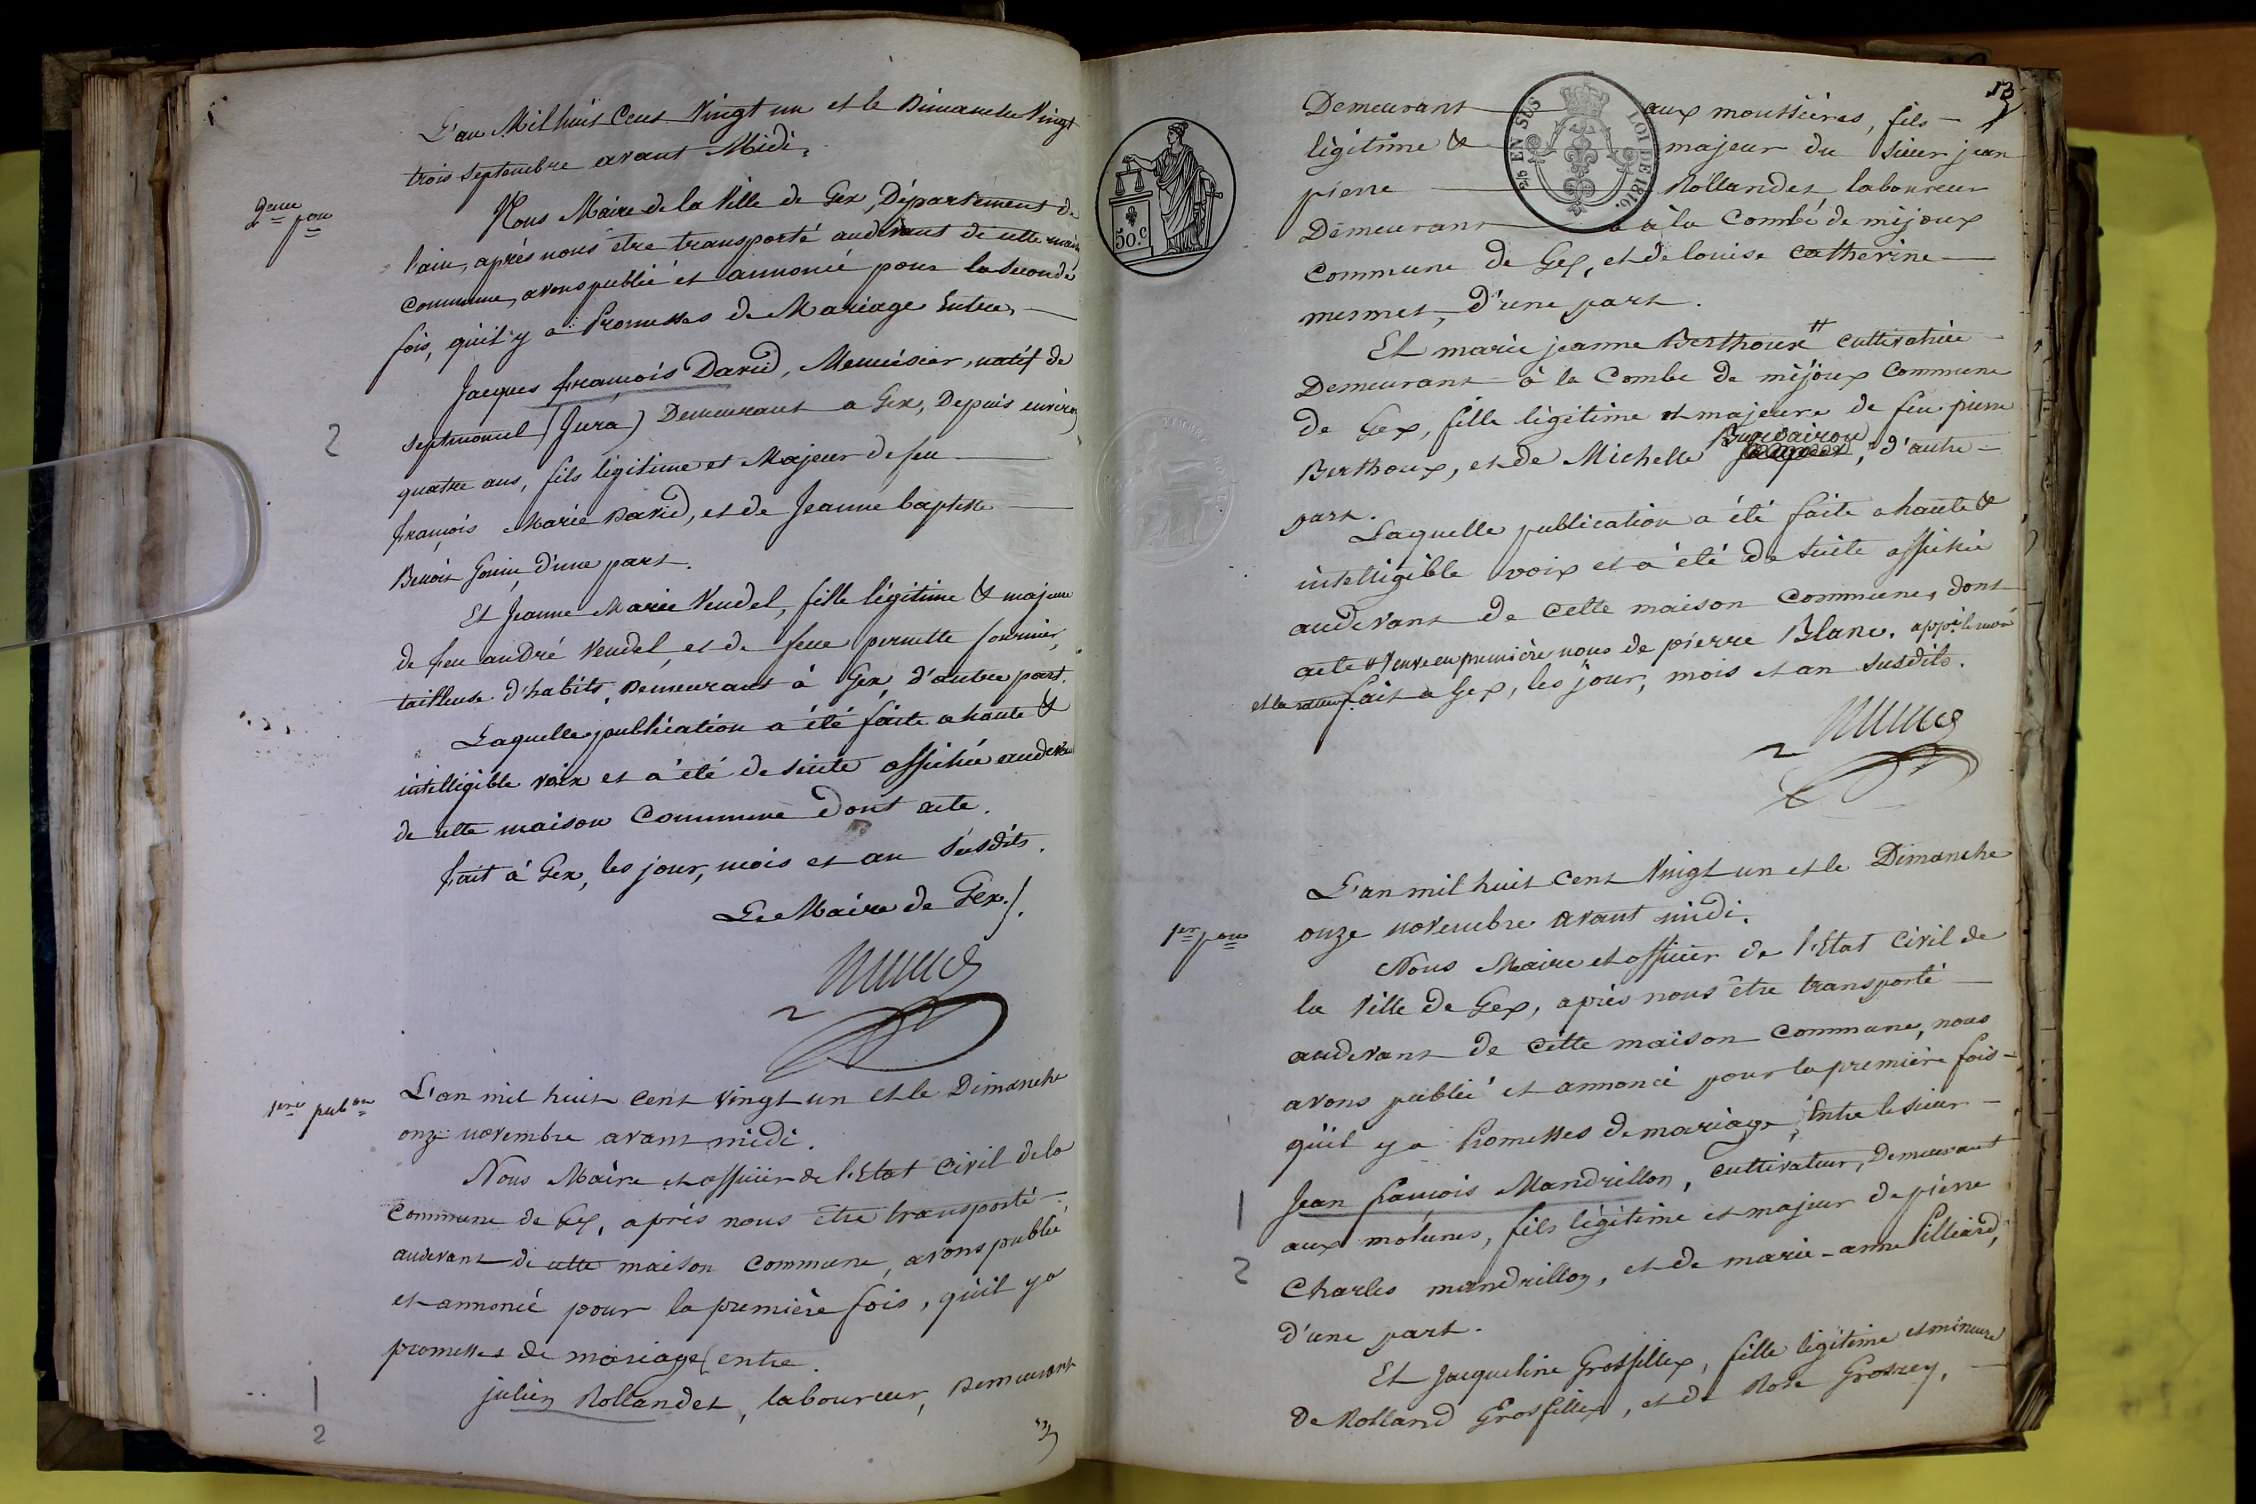 L'an Mil huit Cent Vingt un et le Dimanche Vingt
trois septembre avant Midi,
2eme pon
Nous Maire de la Ville de Gex, Département de
l'ain, après nous être transporté audevant de cette maison
commune, avons publié et annoncé pour la seconde
fois, qu'il y a Promesses de Mariage Entre,
Jacques françois David, Menuisier, natif de
septmoncel (Jura) Demeurant a Gex, Depuis environ
2
quatre ans, fils légitime et Majeur de feu
françois Marie David, et de Jeanne baptiste
Benoit Gonin, d'une part.
Et Jeanne Marie Vendel, fille légitime & majeure
de feu andré Vendel, et de feue pernette fournier,
tailleuse d'habits, Demeurant à Gex, d'autre part.
Laquelle publication a été faite a haute &
intelligible voix et a été de suite affichée audevant
de cette maison Commune Dont acte.
fait à Gex, les jour, mois et an susdits.
Le Maire de Gex.
1ere pubon
L'an mil huit cent vingt un et le Dimanche
onze novembre avant midi.
Nous Maire et officier de l'Etat Civil de la
Commune de Gex, après nous être transporté
audevant de cette maison commune, avons publié
et annoncé pour la première fois, qu'il y a
promesses de mariage, entre.
1
julien Rollandet, laboureur, Demeurant
2
13
Demeurant aux moussières, fils
légitime & majeur du sieur jean
pierre Rollandet, laboureur
Demeurant à la Combe de mijoux
Commune de Gex, et de louise catherine
mermet, d'une part.
50.c
EN SUS
LOI DE 1816.
Et marie jeanne Berthoux # cultivatrice
Demeurant à la Combe de mijoux Commune
de Gex, fille légitime et majeure de feu pierre
Berthoux, et de Michelle d'autre
part.
Laquelle publication a été faite a haute &
intelligible voix et a été de suite affichée
audevant de cette maison Commune, dont
acte # Veuve en première nous de pierre Blanc. app.é le renvoi
et la fait a Gex, les jour, mois et an susdits.
L'an mil huit cent Vingt un et le Dimanche
1er pon
onze novembre avant midi.
Nous Maire et officier de l'Etat Civil de
la Ville de Gex, après nous être transporté
audevant de cette maison commune, nous
avons publié et annoncé pour la première fois
qu'il y a Promesses de mariage, Entre le sieur
1
Jean françois Mandrillon, cultivateur, Demeurant
aux molunes, fils légitime et majeur de pierre
2
Charles mandrillon, et de marie-anne Pilliard,
d'une part.
Et Jacqueline Grosfillex, fille légitime et mineure
de Rolland Grosfillex, et de Rose Grosrey,